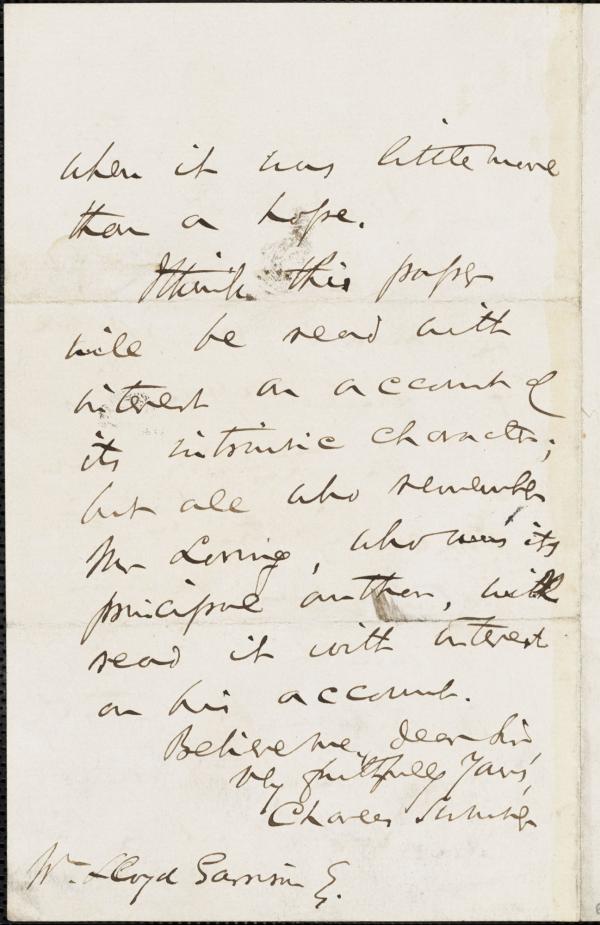 when it was little more
than a hope.
I think this paper
will be read with
interest on account of
its intrinsic character;
but all who remember
Mr Loring, who was its
principal author, will
read it with interest
on his account.
Believe me, dear Sir,
very faithfully Yours,
Charles Sumner
Wm. Lloyd Garrison Esq.